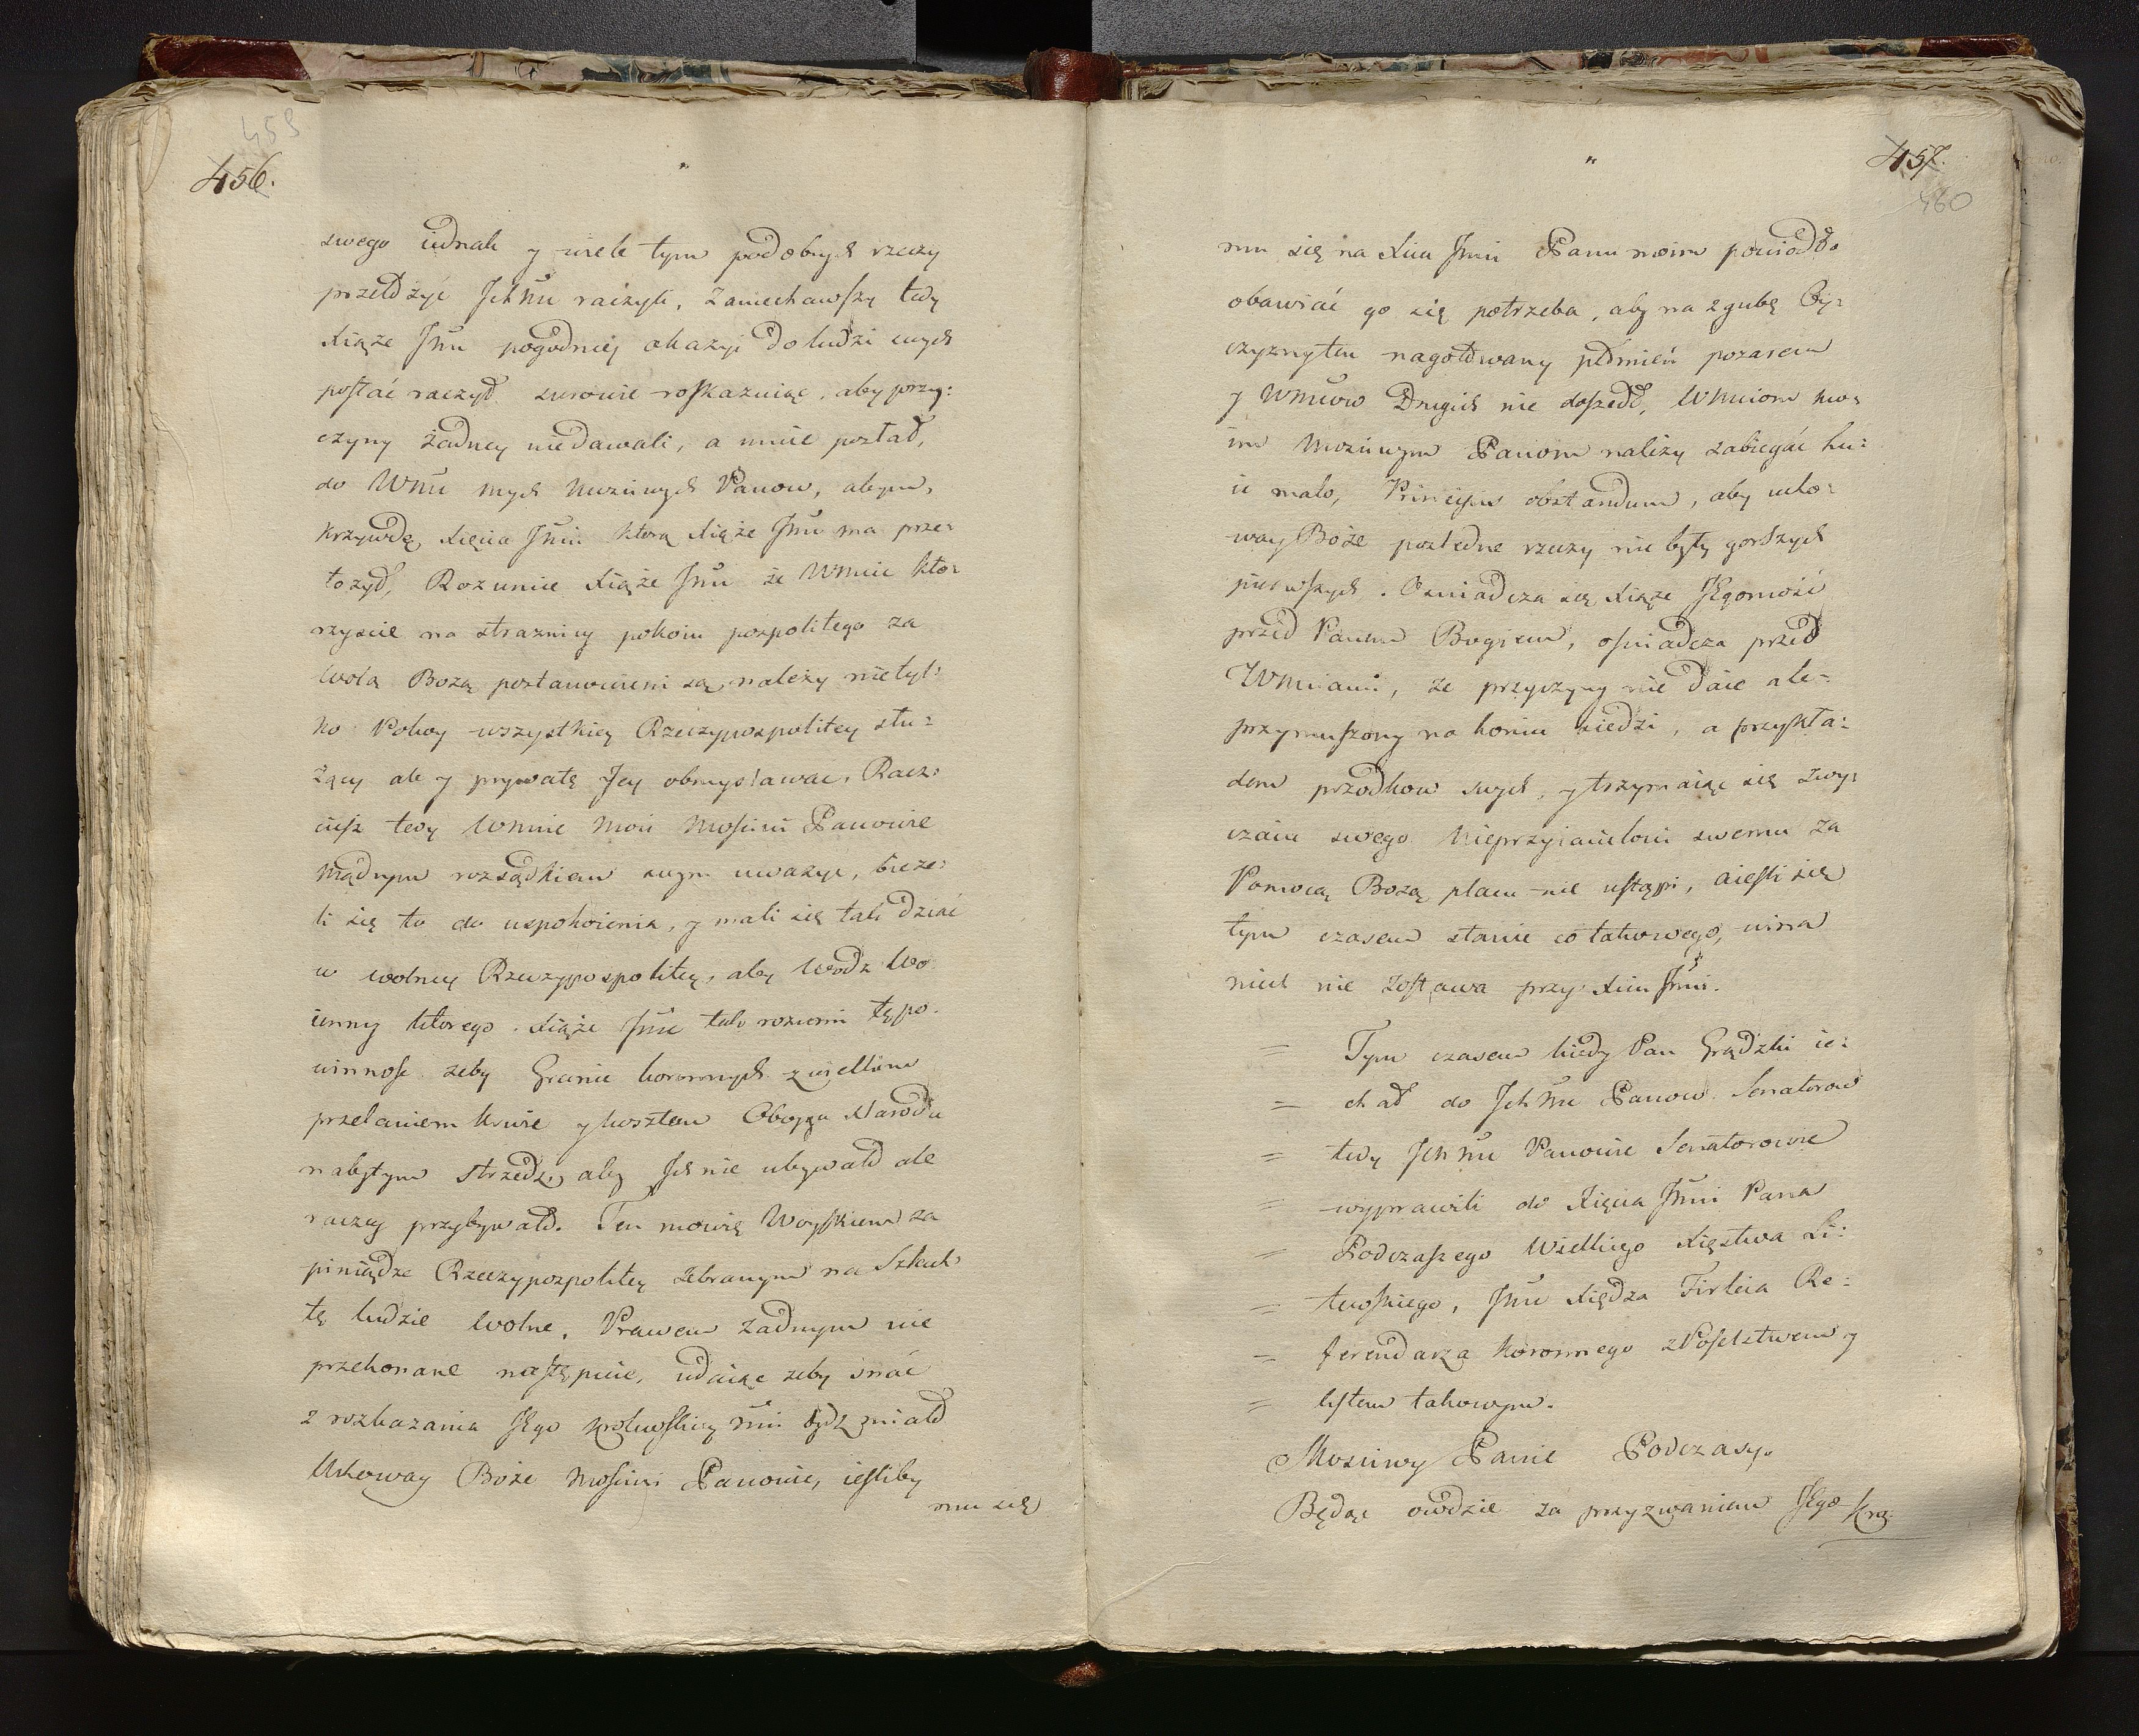 459
456.
swego iednak y wiele tym podobnych rzeczy
przełożyć IchMć raczyli, Zaniechawszy tedy
Xiąże Jmć pogodniey okazyi do ludzi swych
posłać raczył surowie roskazuiąc, aby przy=
czyny żadney niedawali, a mnie posłał,
do WMć mych Mciwych Panow, abym,
krzywdę Xięcia Jmći ktorą Xiąże Jmć ma prze=
łozył, Rozumie Xiąże Jmć że WMcie kto=
rzyscie na straznicy pokoiu pospolitego za
wolą Bozą postanowieni są należy nie tyl=
ko Pokoy wszystkiey Rzeczypospolitey słu=
żący ale y prywatę Jey obmyslawac, Racz=
ciesz tedy WMcie Moi Mosciwi Panowie
Mądrym rozsądkiem swym uwazyc, ieze=
li się to do uspokoienia, y mali się tak dziac
w wolney Rzeczypospolitey, aby Wodz Wo
ienny ktorego Xiąże Jmć tak rozumi tę po=
winnosc zeby Granic koronnych z wielkim
przelaniem krwie y kosztem Oboyga Narodu
nabytym strzedz, aby Ich nie ubywało ale
raczey przybywało. Ten mowię Woyskiem za
piniądze Rzeczypospolitey zebranym na Szlach
tę ludzie wolne, Prawem żadnym nie
przekonane następuie, udaiąc zeby snać
z rozkazania JEgo Krolewskiey Mći bydz miało
Uchoway Boże Mosciwi Panowie, iesliby
mu się
457.
460
mu się na Xciu Jmći Panu moim powiodło
obawiać go się potrzeba, aby na zgubę Oy=
czyzny ten nagotowany płomień pozarem
y WMciow Drugich nie doszedł, WMciom mo=
im Mciwym Panom należy zabiegać ku=
Principiis obstandum, aby ucho=
way Boże poslednie rzeczy nie były gorszych
pierwszych. Oswiadcza się Xiąże JEgomość
przed Panem Bogiem, oswiadcza przed
WMciami, że przyczyny nie daie ale=
przymuszony na koniu siedzi, a przykła=
dem przodkow swych, y trzymaiąc się zwy=
czaiu swego Nieprzyiacielowi swemu za
Pomocą Bozą placu nie ustąpi, a iesli się
tym czasem stanie co takowego, wina
niech nie zostawa przy Xciu Jmći.
= Tym czasem kiedy Pan Grądzki ie=
= chał do IchMć Panow Senatorow
= tedy IchMć Panowie Senatorowie
= wyprawili do Xięcia Jmći Pana
= Podczaszego Wielkiego Xięstwa Li=
= tewskiego, Jmć Xiędza Firleia Re=
= ferendarza Koronnego z Poselstwem y
= listem takowym.
Mosciwy Panie Podczaszy.
Będąc owdzie za przyzwaniem JEgo Kro=